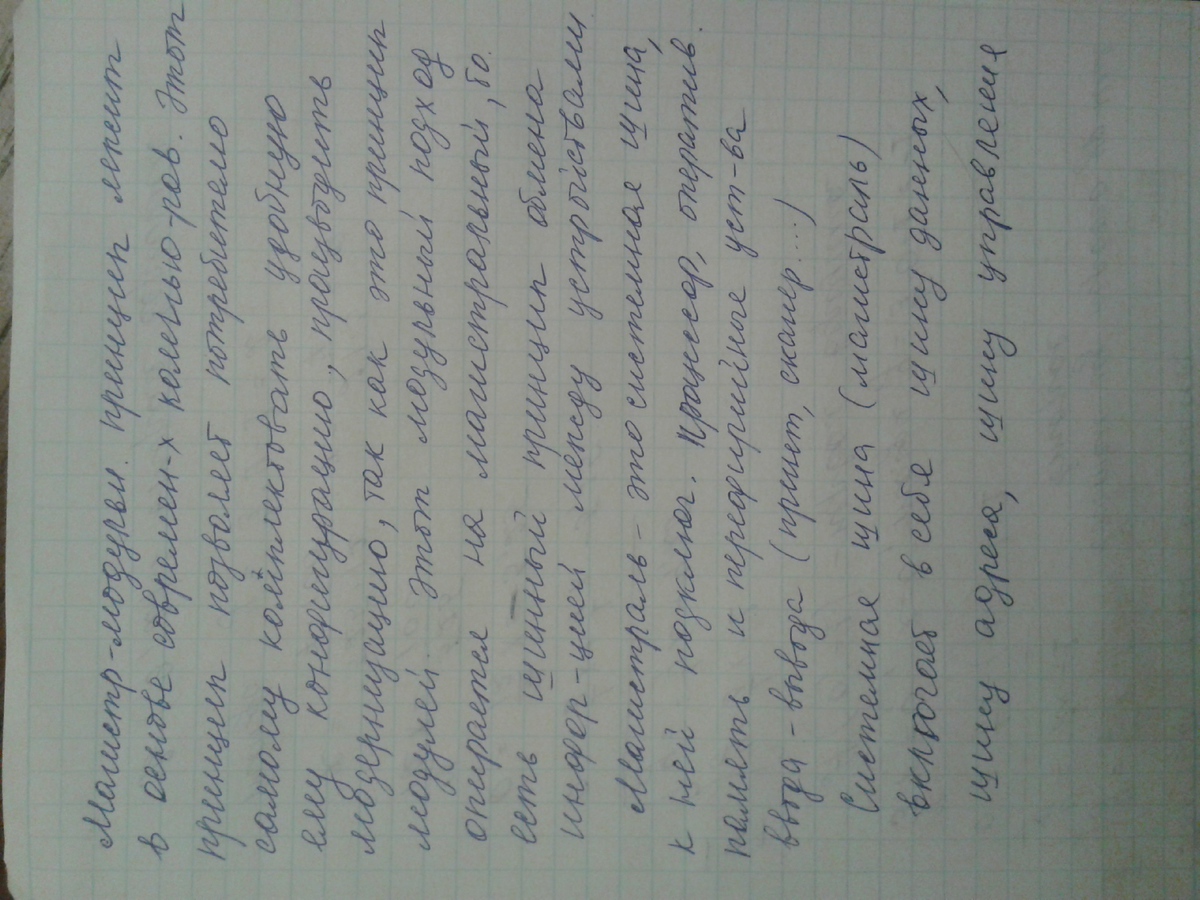 Магистр-модульн. принцип лежит
в основе современ-х компью-ров. Этот
принцип позволяет потребителю
самому комплектовать удобную
ему конфигурацию, производить
модернизацию, так как это принцип
модулей. Этот модульный подход
опирается на магистральный, то
есть шинный принцип обмена
информ-цией между устройствами
Магистраль - это системная шина,
к ней подключ. Процессор, оператив.
память и периферийные уст-ва
ввода - вывода (принт, сканер....)
Системная шина (магистраль)
включает в себе шину данных,
шину адреса, шину управления